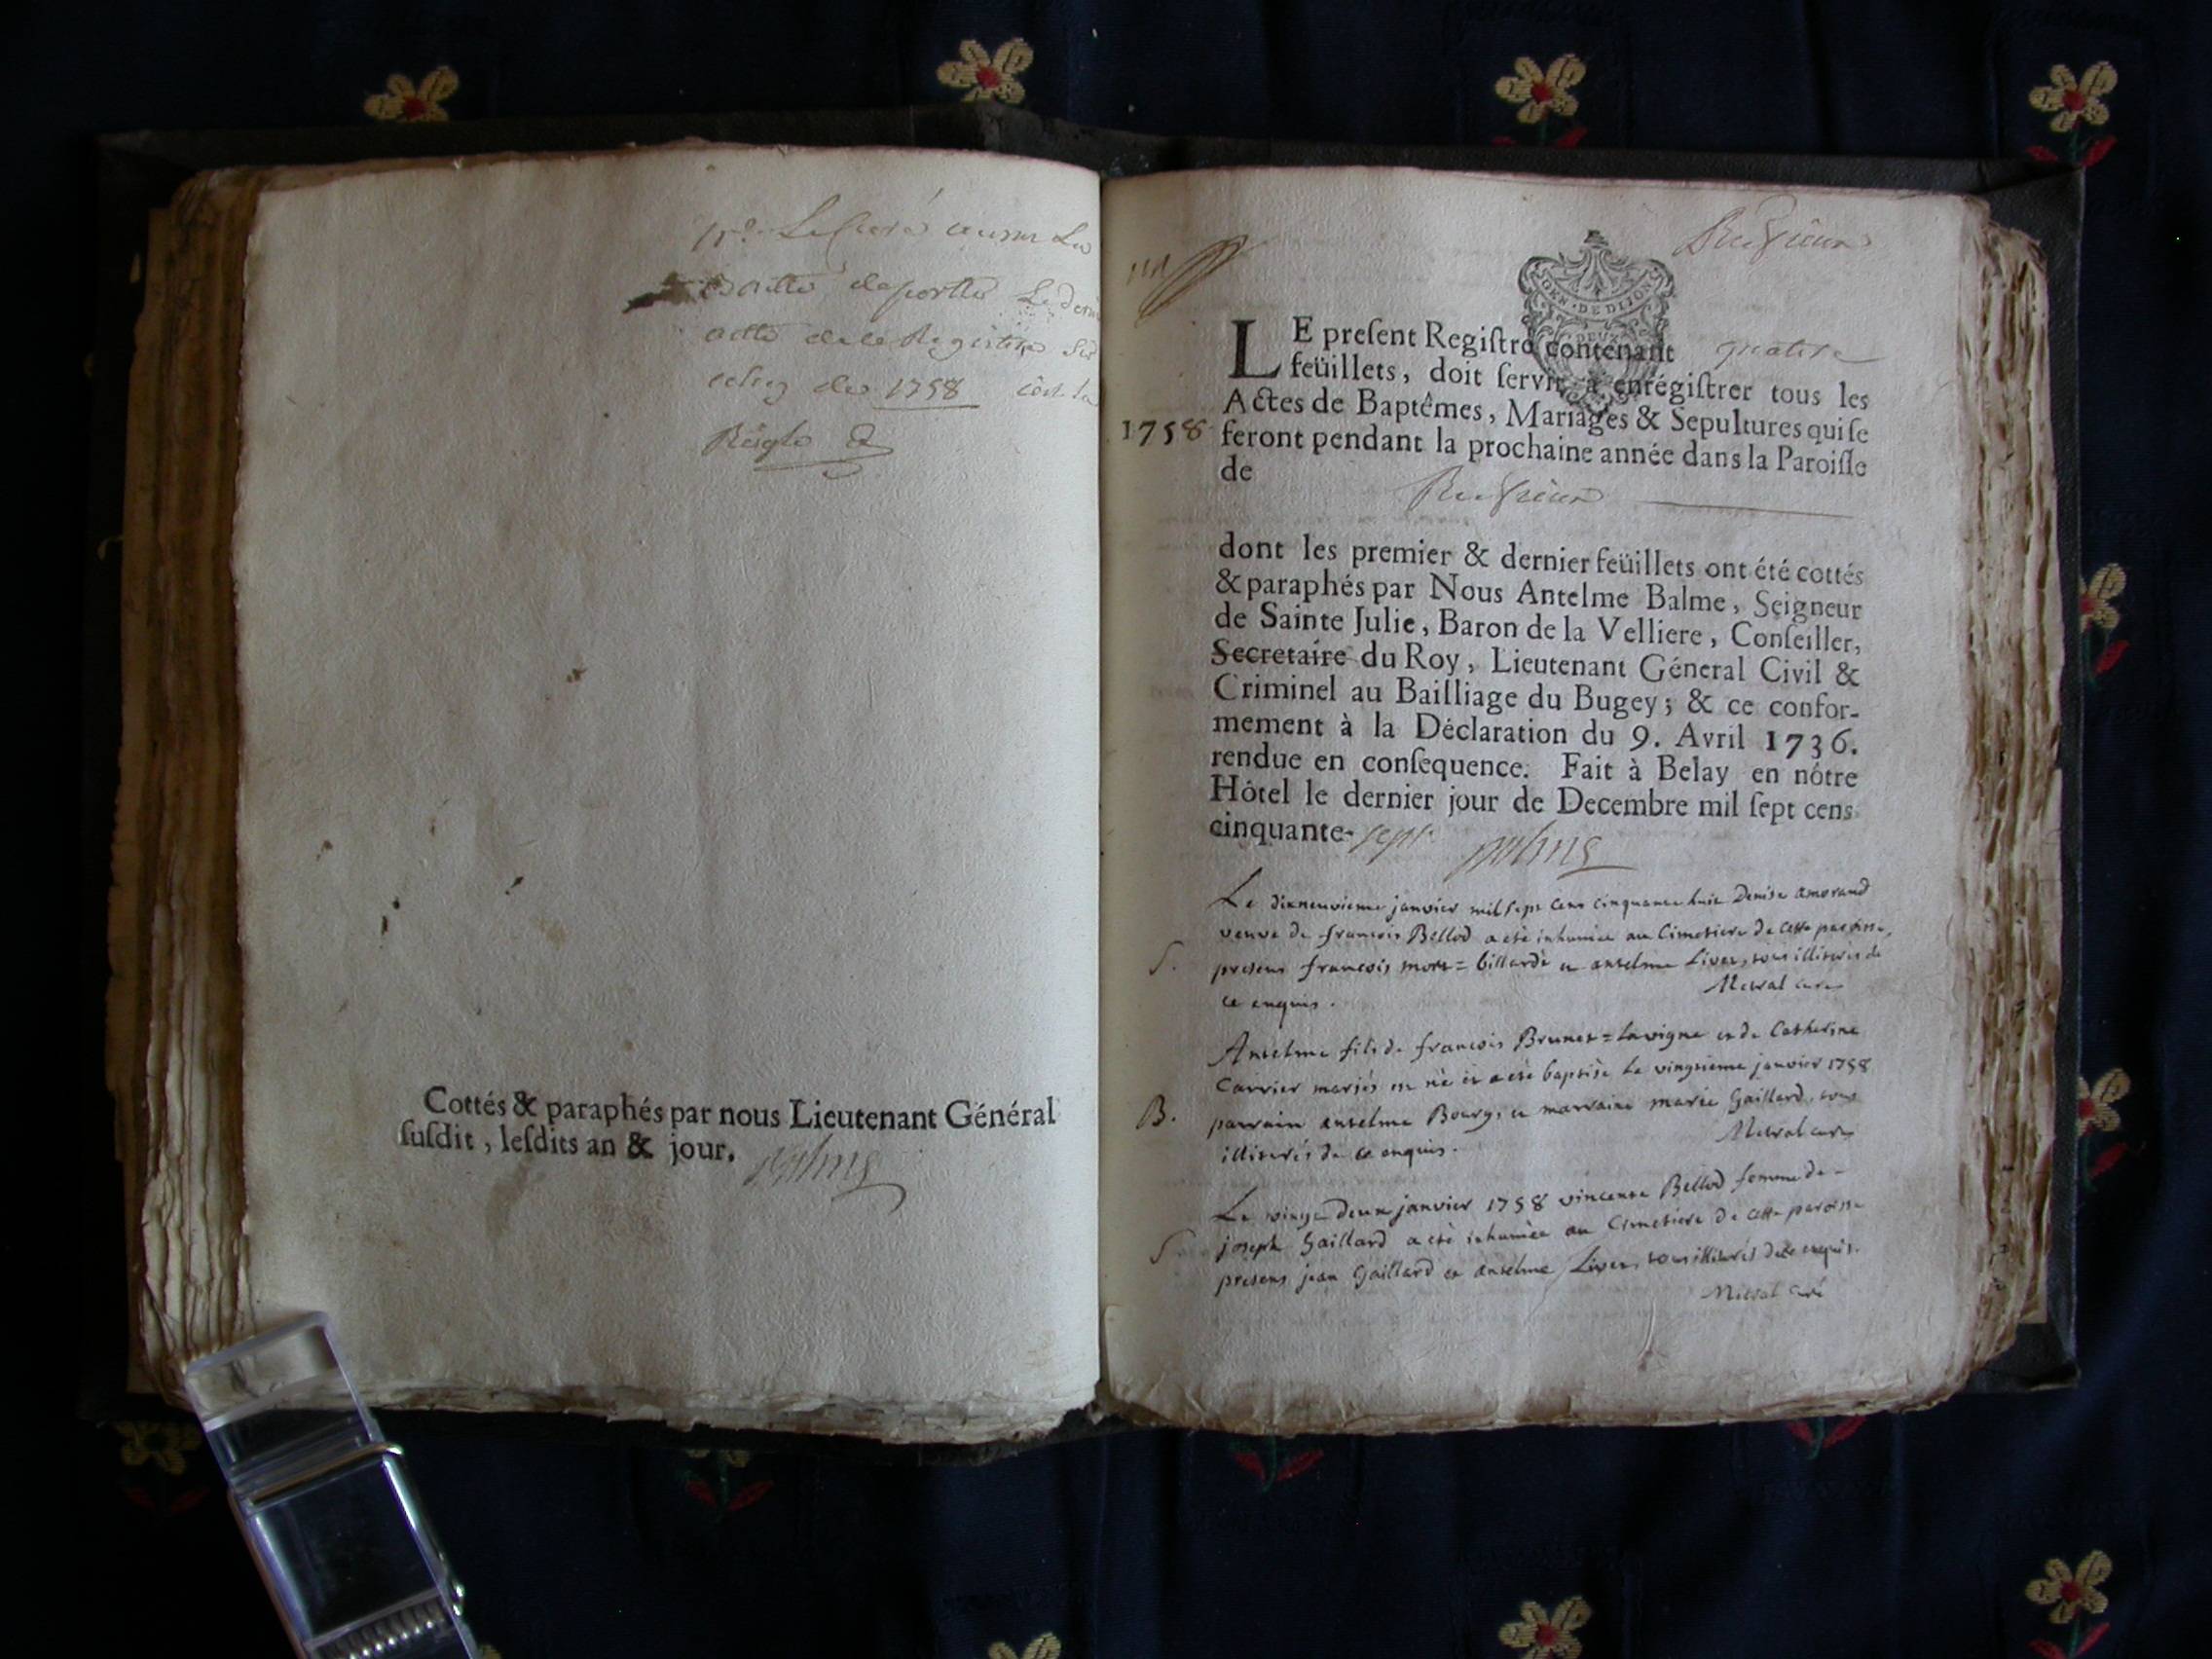 Le Curé aura La
de porter Le derni
acte de ce Registre
de 1758
Règle
Cottés & paraphés par nous Lieutenant Général
ſuſdit, leſdits an & jour.
GEN · DE DIJON
DEUX
LE preſent Regiſtre contenant
feüillets, doit ſervir à enrégiſtrer tous les
Actes de Baptêmes, Mariages & Sepultures qui ſe
1758 feront pendant la prochaine année dans la Paroiſſe
de
dont les premier & dernier feüillets ont été cottés
& paraphés par Nous Antelme Balme, Seigneur
de Sainte Julie, Baron de la Velliere, Conſeiller,
Secretaire du Roy, Lieutenant Géneral Civil &
Criminel au Bailliage du Bugey; & ce confor-
mement à la Déclaration du 9. Avril 1736.
rendue en conſequence. Fait à Belay en nôtre
Hôtel le dernier jour de Decembre mil ſept cens
cinquante-sept
Le dixneuvieme janvier mil sept cens cinquante huit Denise amorand
veuve de francois Bellod a eté inhumée au Cimetiere de cette paroisse,
S. presens francois mort= billarde et antelme Livet, tous illiterés de
ce enquis. Metral curé
Antelme fils de francois Brunet=Lavigne et de Catherine
Carrier mariés est né et a eté baptisé Le vingtieme janvier 1758
B. parrain antelme Bourg, et marraine marie Gaillard, tous
illiterés de ce enquis. Metral curé
Le vingt deux janvier 1758 vincente Bellod femme de-
S joseph Gaillard a eté inhumée au Cimetiere de cette paroisse
presens jean Gaillard et antelme Livet, tous illiterés de ce enquis.
Metral curé